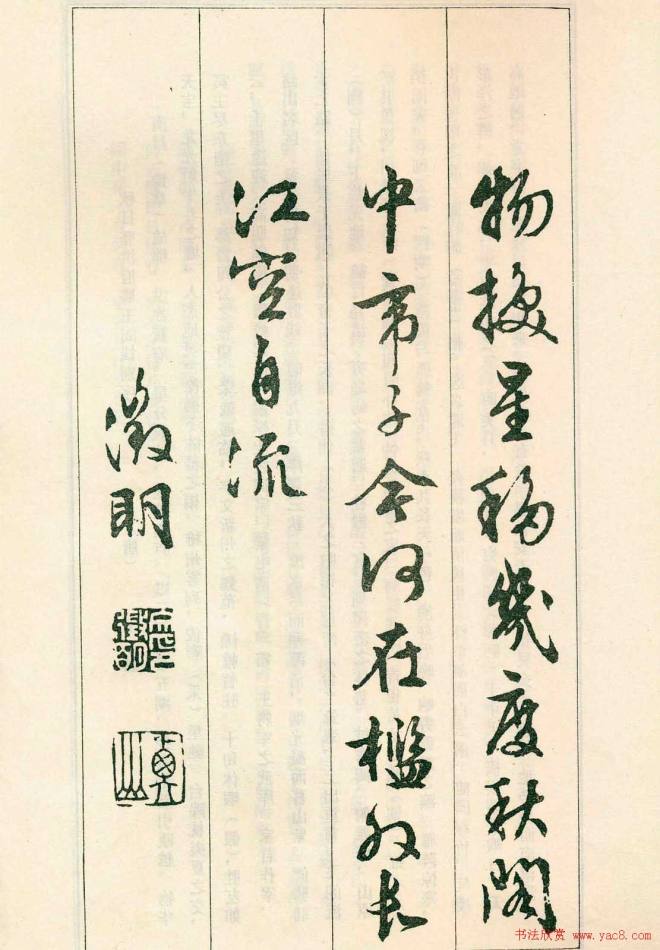 物換星移幾度秋閣
中帝子今何在檻外長
江空自流
徵明
书法欣赏 www.yac8.com